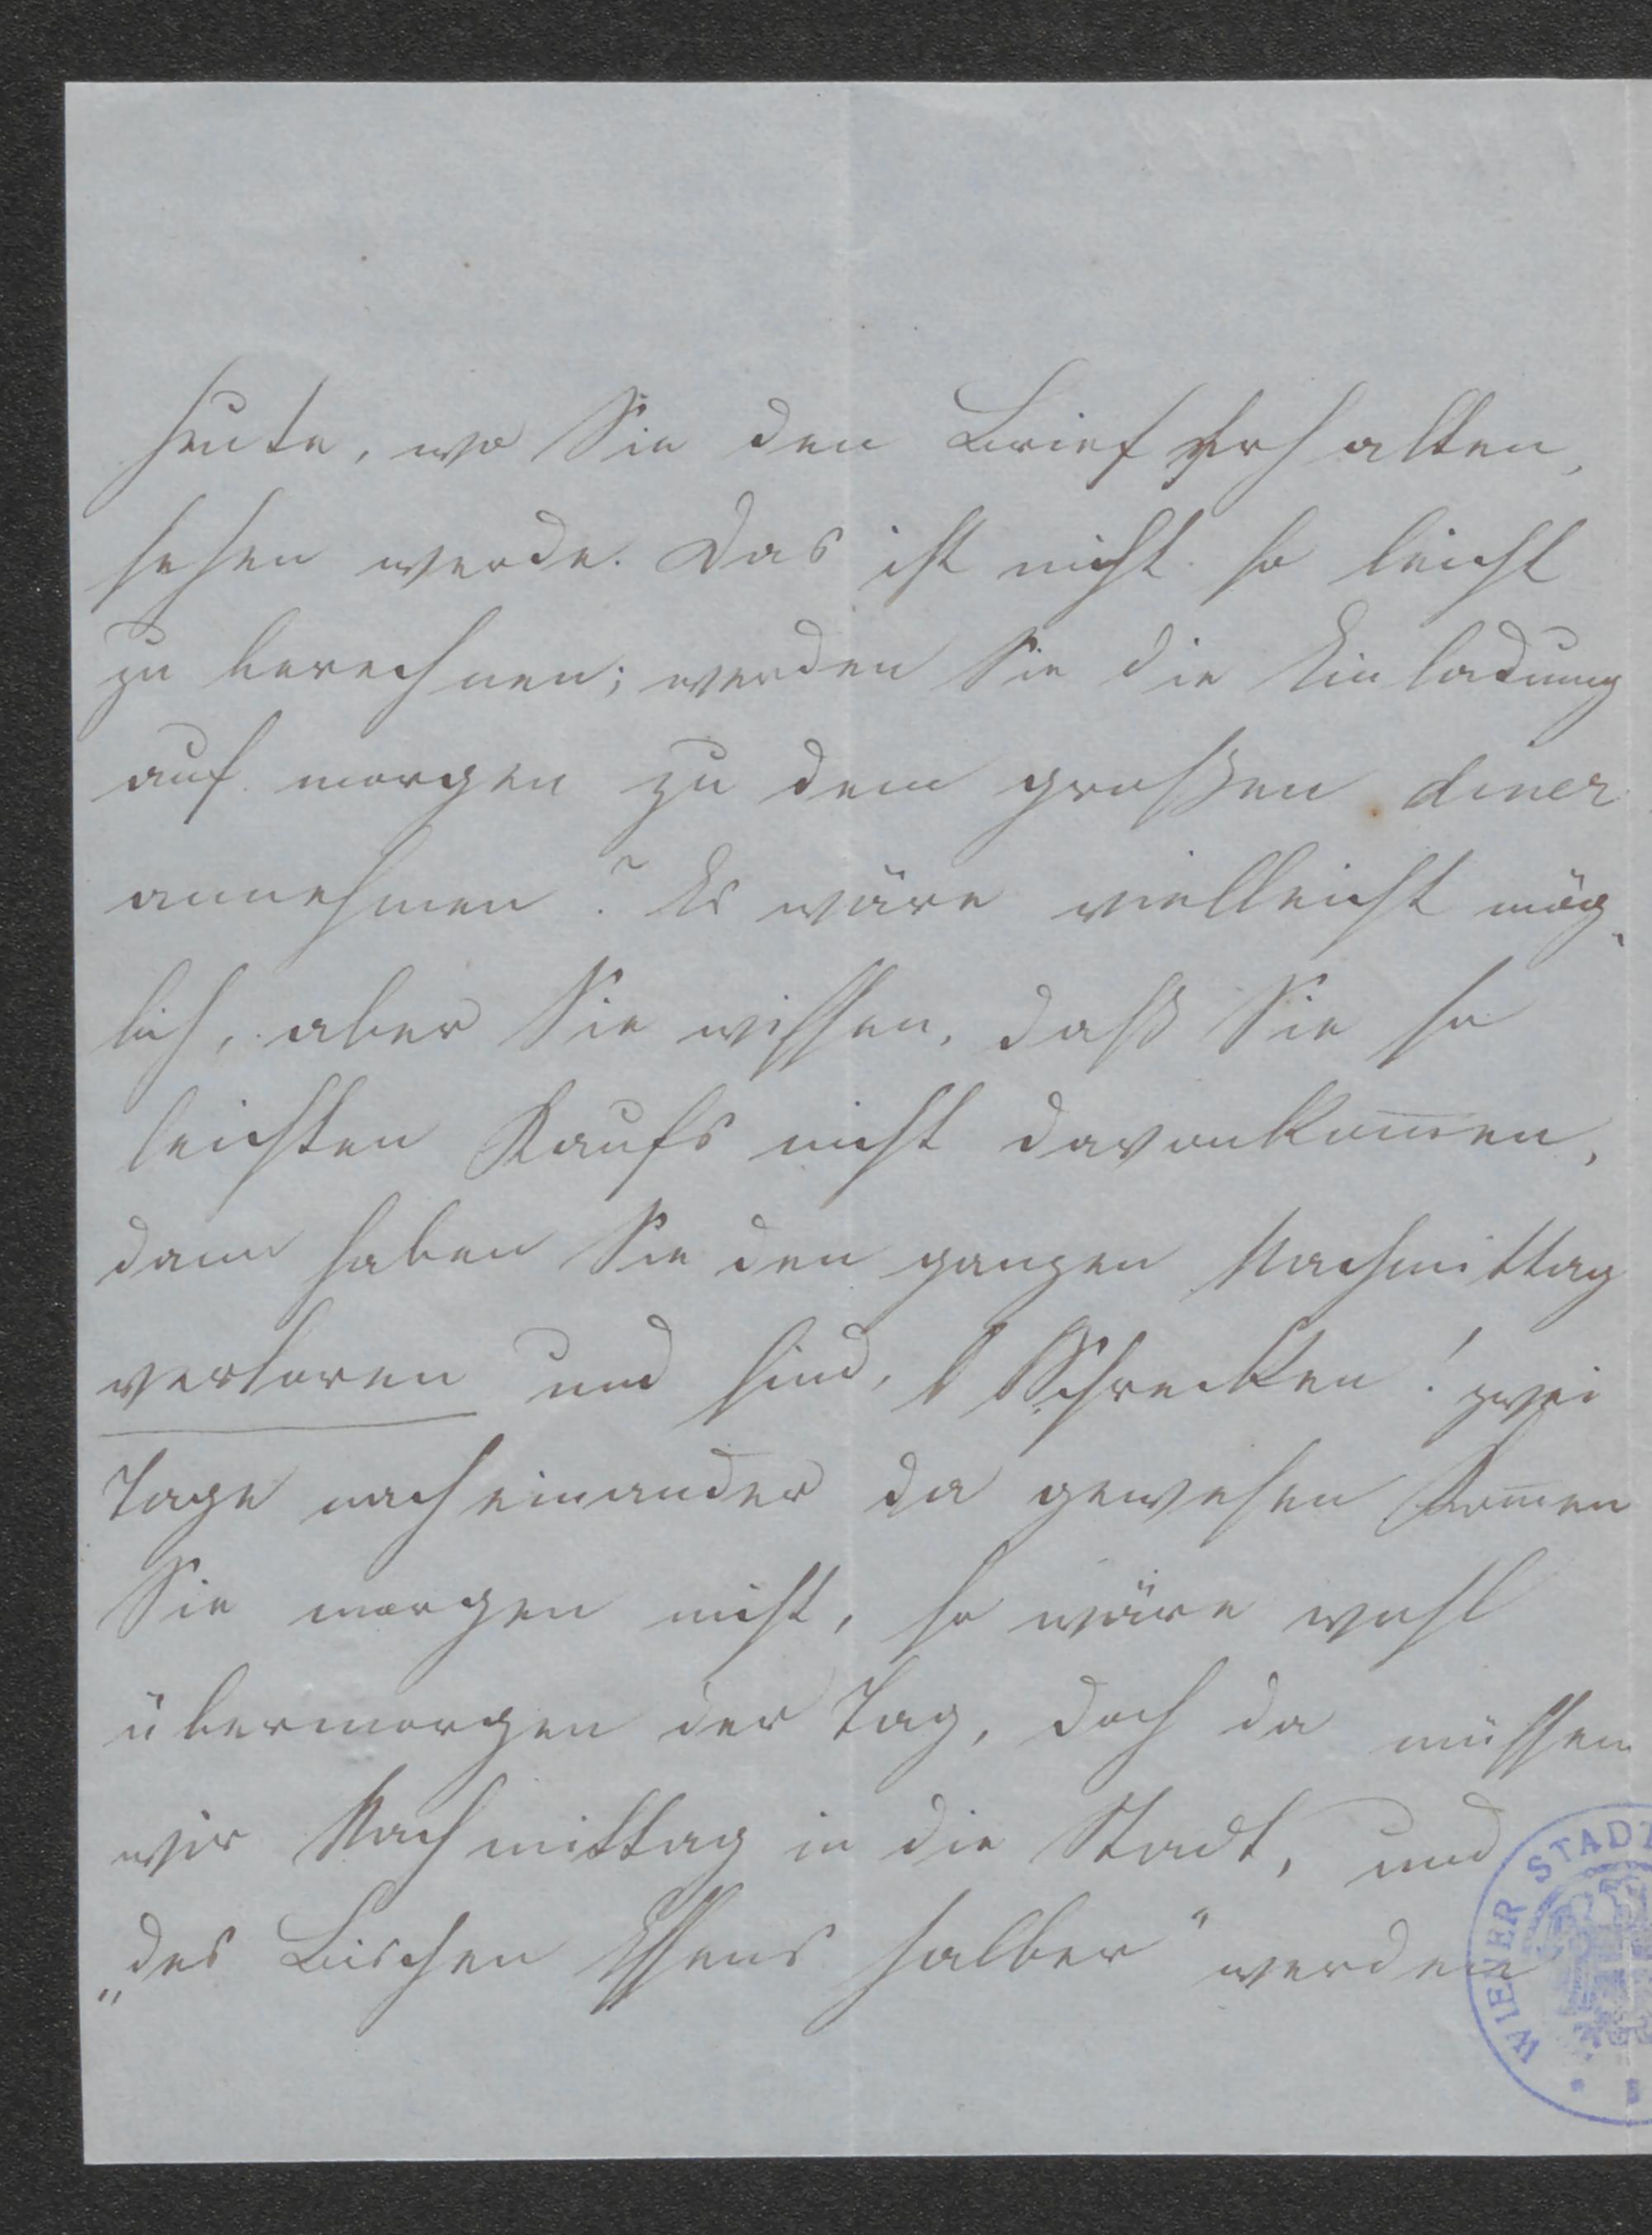 heute, wo Sie den Brief erhalten,
sehen werde. Das ist nicht so leicht
zu berechnen; werden Sie die Einladung
auf morgen zu dem großen diner
annehmen? Es wäre vielleicht mög-
lich, aber Sie wissen, daß Sie so
leichten Kaufs nicht davonkom̅en,
dann haben Sie den ganzen Nachmittag
verloren und sind, O Schrecken! zwei
Tage nach einander da gewesen Kom̅en
Sie morgen nicht, so wäre wohl
übermorgen der Tag, doch da müssen
wir Nachmittag in die Stadt, und
„des Bischen Essens halber" werden
WIENER STADT